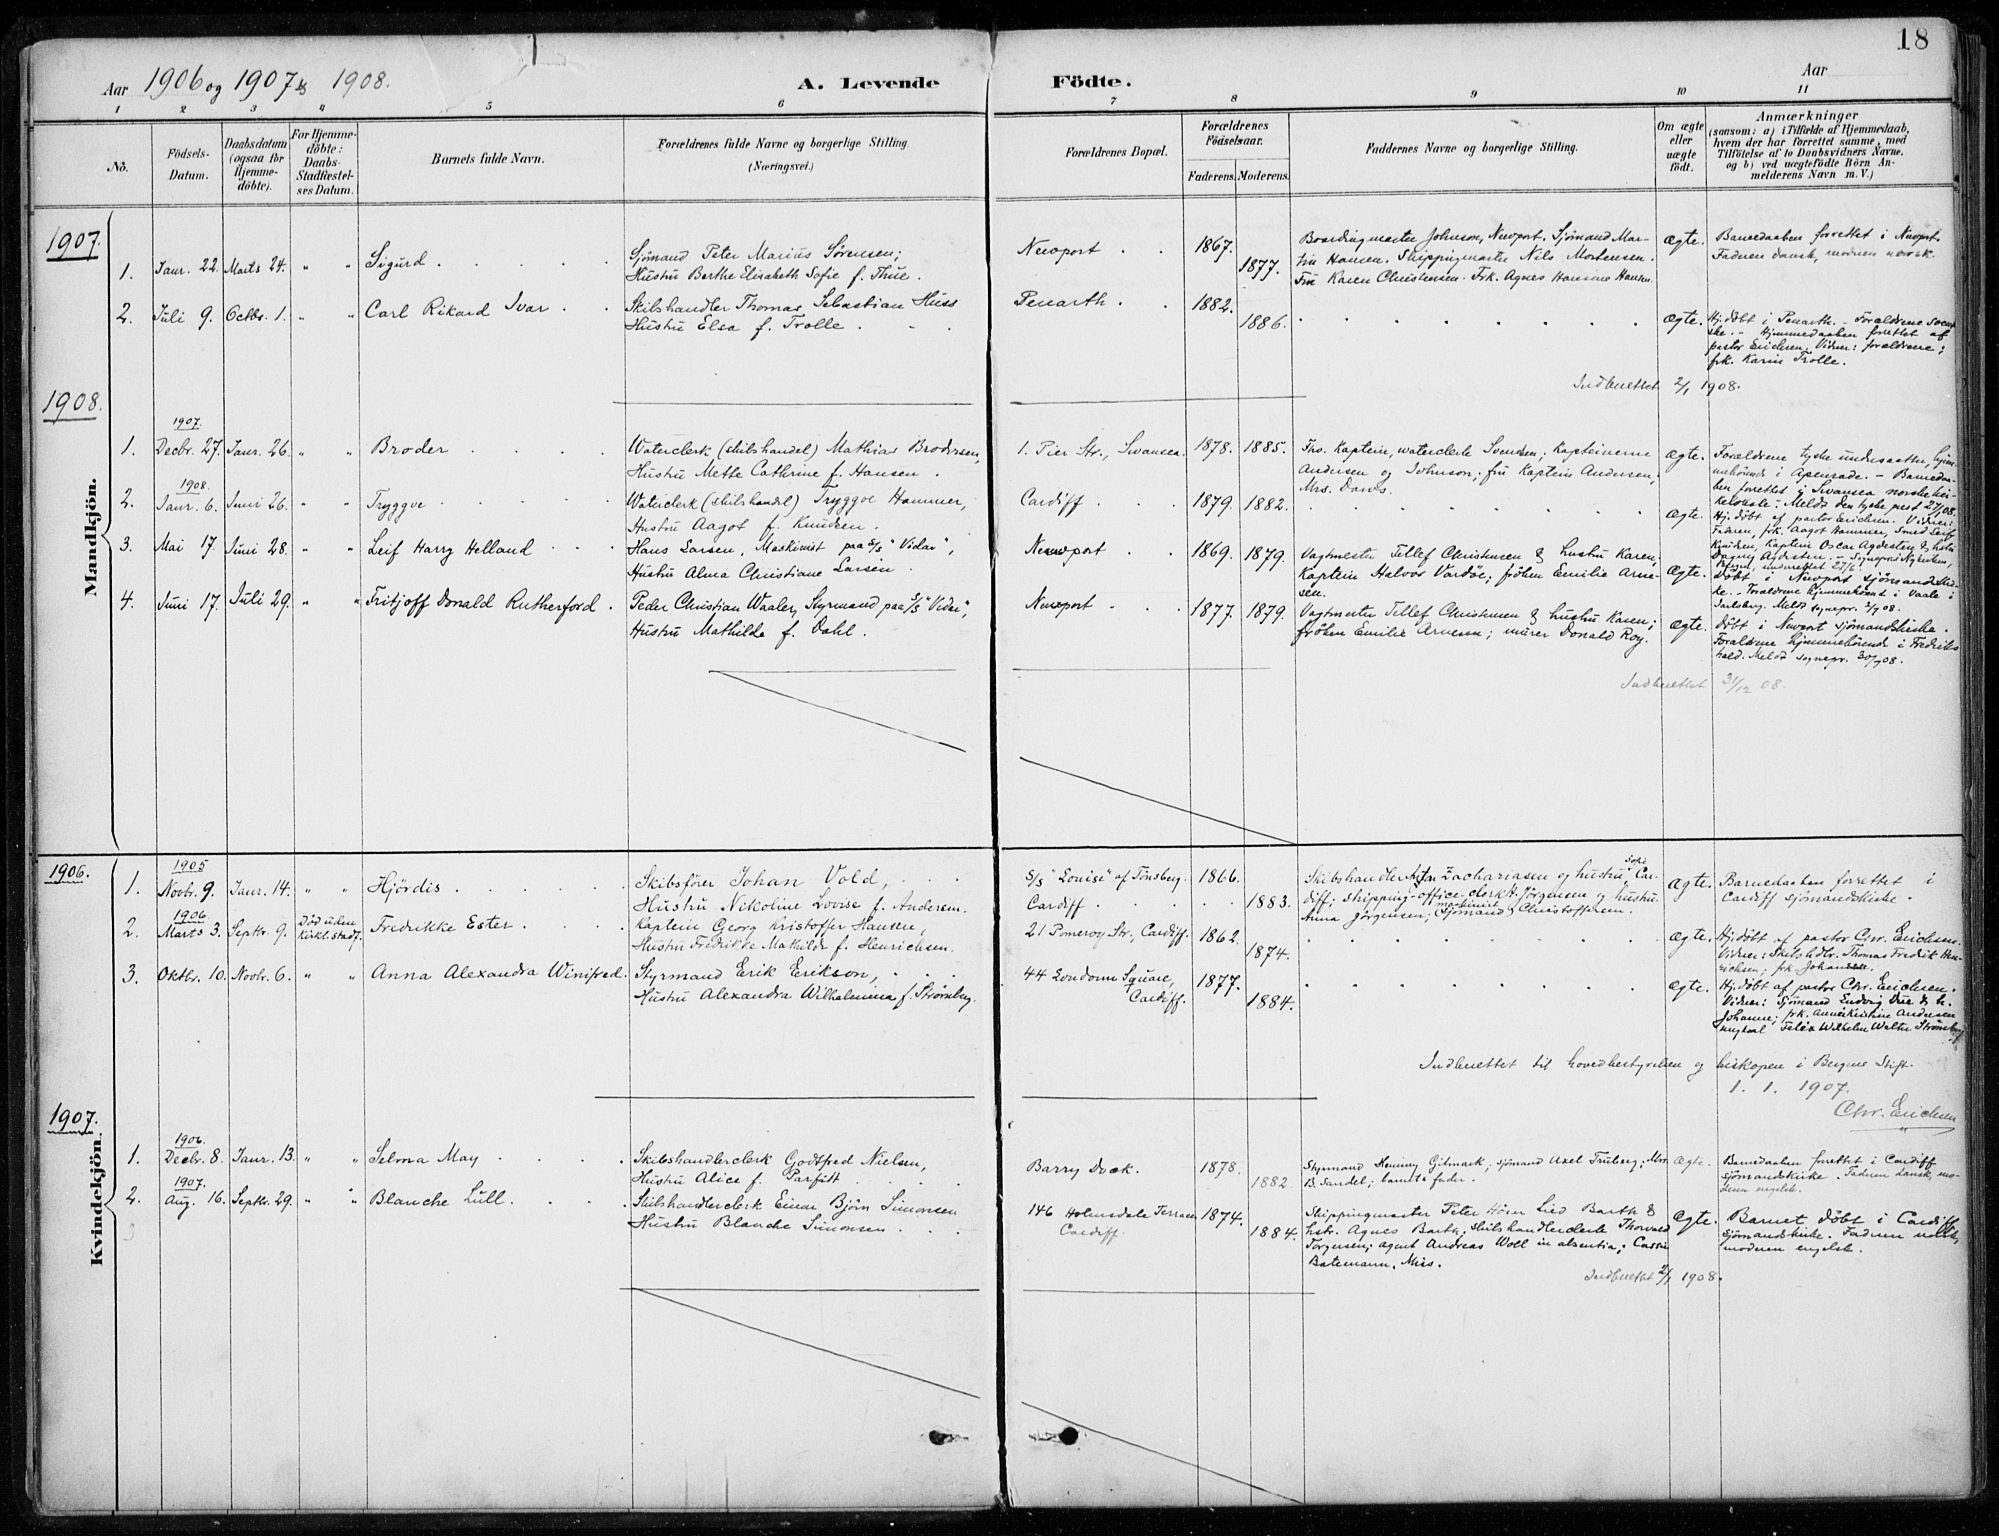 18
Aar 1906 og 1907 & 1908.
A. Levende Födte.
Aar
1 2 3 " 5 6 7 8 9 10 11
No.
Födsels-
Datum.
Daabsdatum
(ogsaa for
Hjemme-
döbte).
For Hjemme-
döbte:
Daabs-
Stadfæstel-
ses Datum.
Barnets fulde Navn.
Forældrenes fulde Navne og borgerlige Stilling.
(Næringsvei.)
Forældrenes Bopæl.
Forældrenes
Födselsaar.
Faderens. Moderens.
Faddernes Navne og borgerlige Stilling.
Om ægte
eller
uægte
födt.
Anmærkninger
(saasom: a) i Tilfælde af Hjemmedaab,
hvem der har forrettet samme, med
Tilföielse af to Daabsvidners Navne.
og b) ved uægtefödte Börn An-
melderens Navn m. V.)
Mandkjön.
1907.
1. Janr. 22. Marts 24. " " Sigurd
Sjömand Peter Marius Sørensen;
Hustru Berthe Elisabeth Sofie f. Thue.
Newport 1867. 1877.
Boardingmaster Johnson, Newport. Sjömand Mar-
tin Hansen. Shippingmaster Nils Mortensen.
Fru Karen Christensen. Frk. Agnes Hansine Hansen.
Ægte.
Barnedaaben forrettet i Newport.
Faderen dansk, moderen norsk.
2. Juli 9. Octbr. 1. " " Carl Rikard Ivar
Skibshandler Thomas Sebastian Huss
Hustru Elsa f. Trolle.
Penarth 1882. 1886.
Ægte.
Hj.döbt i Penarth. - Forældrene svens-
ske. - Hjemmedaaben forrettet af
pastor Erichsen. Vidner: forældrene;
frk. Karin Trolle.
Indberettet 2/1 1908.
1908.
1. 1907. Decbr. 27. Janr. 26. " " Broder
Waterclerk (skibshandel) Mathias Brodersen,
Hustru Mette Cathrine f. Hansen.
1. Pier Str., Swansea. 1878. 1885.
Fhv. Kaptein, waterclerk Svendsen; Kapteinerne
Andersen og Johnson; fru Kaptein Andersen,
Mrs. Daws.
Ægte.
Forældrene tyske undersaatter, hjem-
mehörende i Apenrade. - Barnedaa-
ben forrettet i Swansea norske kir-
kelokale. - Meldt den tyske prest 27/1 08.
2. 1908. Janr. 6. Juni 26. " " Tryggve
Waterclerk (skibshandel) Tryggve Hammer,
Hustru Aagot f. Knudsen.
Cardiff 1879. 1882.
Ægte.
Hj.döbt af pastor Erichsen. Vidner:
Faderen, frk. Aagot Hammer, Smed
Knudsen, Kaptein Oscar Agdesten &
Dagny Agdesten.
3. Mai 17. Juni 28. " " Leif Harry Helland
Hans Larsen, Maskinist paa S/S "Vidar",
Hustru Alma Christiane Larsen.
Newport 1869. 1879.
Vagtmester Tellef Christensen & hustru Karen;
Kaptein Halvor Vardöe; fröken Emilie Arne-
sen.
Ægte.
Döbt i Newport sjömandskir-
ke. - Forældrene hjemmehörende i Vaale i
Jarlsberg. Meldt sognepr. 2/7 08.
4. Juni 17. Juli 29. " " Fritjoff Donald Rutherford
Peder Christian Waaler, Styrmand paa S/S "Vidar",
Hustru Mathilde f. Dahl.
Newport 1877. 1879.
Vagtmester Tellef Christensen & hustru Karen;
fröken Emilie Arnesen; murer Donald Roy.
Ægte.
Döbt i Newport sjömandskirke.
Forældrene hjemmehörende i Fredriks-
hald. Meldt sognepr. 30/7 08.
Indberettet 31/12 08.
Kvindekjön.
1906.
1. 1905 Novbr. 9. Janr. 14. " " Hjördis
Skibsförer Johan Vold,
Hustru Nikoline Lovise f. Andersen.
S/S "Louise" af Tönsberg.
Cardiff 1866. 1883.
Skibshandler Zachariasen og hustru Sofie Car-
diff; Shipping-office-clerk H. Jörgensen og hustru
Anna Jörgensen; maskinist Sjömand Christoffersen.
Ægte.
Barnedaaben forrettet i
Cardiff sjömandskirke.
2. 1906 Marts 3. Septbr. 9. Död uden
kirkl. stadf.
Fredrikke Ester
Kaptein Georg Kristoffer Hansen,
Hustru Fredrikke Mathilde f. Henrichsen.
21 Pomeroy Str., Cardiff. 1862. 1874.
Ægte.
Hj.döbt af pastor Chr. Erichsen.
Vidner: Skibshdlr. Thomas Fredrik Hen-
richsen; frk. Johansen.
3. Oktbr. 10. Novbr. 6. " " Anna Alexandra Winifred.
Styrmand Erik Erikson,
Hustru Alexandra Wilhelmina f. Strömberg.
44 Loudoun Square,
Cardiff. 1877. 1884.
Ægte.
Hj.döbt af pastor Chr. Erichsen.
Vidner: Sjömand Ludvig Due & h.
Johanne; frk. Anna Kristine Andersen
ungkarl Felix Wilhelm Walter Strömberg
Indberettet til hovedbestyrelsen og biskopen i Bergens Stift.
1. 1. 1907.
Chr. Erichsen
1907.
1. 1906. Decbr. 8. Janr. 13. " " Selma May
Skibshandlerclerk Godtfred Nielsen,
Hustru Alice f. Parfitt
Barry Dock. 1878. 1882.
Styrmand Henning Gitmark; sjömand Axel Truberg; Mrs.
B. Sandel; barnets fader.
Ægte.
Barnedaaben forrettet i Cardiff
sjömandskirke. Faderen dansk, mo-
deren engelsk.
2. 1907. Aug. 16. Septbr. 29. " " Blanche Lull
Skibshandlerclerk Einar Björn Simonsen
Hustru Blanche Simonsen
146 Holmsdale Terrace
Cardiff. 1874. 1884.
Shippingmaster Peter Hörm Lied Barth &
hstr. Agnes Barth; skibshandlerclerk Thorvald
Torgersen; agent Andreas Woll in absentia; Cassie
Batemann, Miss.
Ægte.
Barnet döbt i Cardiff
sjömandskirke. Faderen norsk,
moderen engelsk.
Indberettet 2/1 1908.
3